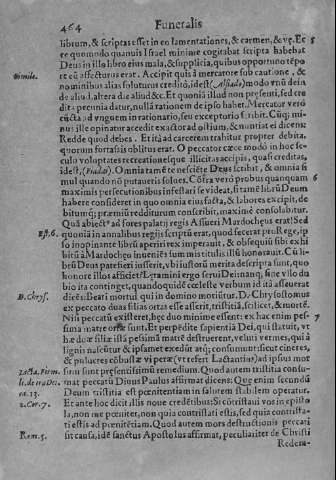 464 Funeralis
librum, & scriptas esset in eo lamentationes, & carmen, & væ. Et 5
ee quomodo quanuis Israel minime cogitabat scripta habebat
Deus in illo libro eius mala, & supplicia, quibus opportuno tēpo
Simile. re eū affecturus erat. Accipit quis à mercatore sub cautione, &
no minibus alias soluturi creditò, idest modo vnū dein
de aliud, altera die aliud &c. Et quoniā illud non præsenti, sed cre
dita pecunia datur, nullā rationem de ipso habet. Mercator verò
cūcta ad vnguem in rationario, seu exceptorio scribit. Cūq; mi
nus ille opinatur accedit exactor ad ostium, & cunctas ei dicens:
Redde quod debes. Et ita ad carcerem trahitur propter debita,
quorum fortassis oblitus erat. O peccator cæce modo in hoc sæ
culo voluptates recreationesque illicitas accipis, quasi creditas,
idest, Omnia tamē te nesciēte Deus scribit, & omnia si
mul quando nō putaueris solues. Cōtra verò probus quanquam 6
maximis persecutionibus infestari se videat, si tamē librū Deum
habere consideret in quo omnia eius facta, & labores excipit, de
bitumq; præmiū redditurum conscribit, maximè consolabitur.
Quā abiectꝰ ad fores palatij regis Assueri Mardocheus erat? Sed
Est. 6. quoniā in annalibus regijs scriptū erat, quod fecerat pro Rege, ip
so inopinante librū aperiri rex imperauit, & obsequiū sibi exhi
bitū à Mardocheo inueniēs summistulis illū honorauit. Cū li-
brū Deus patefieri iusserit, vbi iustorū merita descripta sunt, quo
honore illos afficiet? Lætamini ergo serui Dei nanq; sine vllo du
bio ita continget, quandoquidē cœleste verbum id ità asseuerat
D. Chrys. dicēs: Beati mortui qui in domino moriūtur. D. Chrysostomus
ex peccato duas filias ortas esse asserit, tristitiā, scilicet, & mortē.
Nisi peccatū existeret, hæc duo minime essent: ex hac enim pes- 7
sima matre ortæ sunt. Et perpēdite sapientiā Dei, qui statuit, vt
hæ duæ filiæ istā pessimā matrē destruerent, veluti vermes, qui à
lignis nascūtur & ipsamet exedūt atq; consumunt: sicut cineres,
& pulueres cōbustæ viperæ (vt refert Lactantius) ad ipsius mor
sum sunt præsentissimū remedium. Quod autem tristitia consu-
mat peccatū Diuus Paulus affirmat dicens: Quæ enim secundū
Deum tristitia est pœnitentiam in salutem stabilem operatur.
2. Cor. 7. Et ante hoc dicit illis noue credētibus: Si cōtristaui vos in episto
la, non me pœnitet, non quia contristati estis, sed quia contrista-
ti estis ad pœnitētiam. Quod autem mors destructionis peccati
Rom. 5. sit causa, idē sanctus Apostolus affirmat, peculiariter de Christi
Redem-